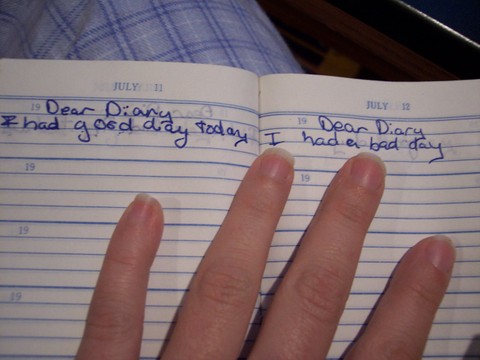 JULY 11
19 Dear Diary
I had good diay today
19
19
19
JULY 12
19 Dear Diary
I had a bad day
19